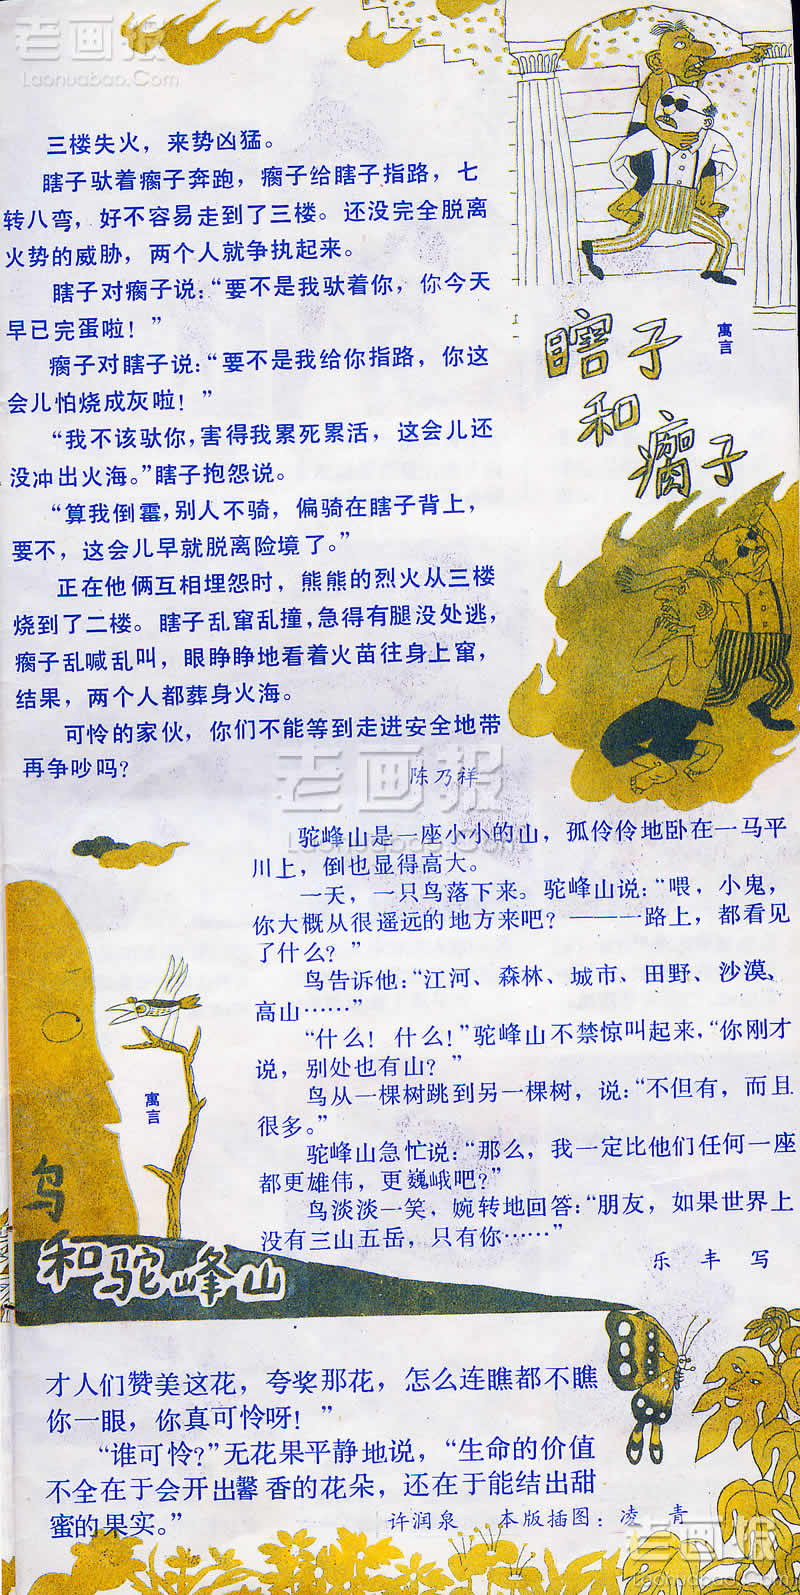 老画报
Laohuabao.Com
三楼失火，来势凶猛。
瞎子驮着瘸子奔跑，瘸子给瞎子指路，七
转八弯，好不容易走到了三楼。还没完全脱离
火势的威胁，两个人就争执起来。
瞎子对瘸子说：“要不是我驮着你，你今天
早已完蛋啦！”
瘸子对瞎子说：“要不是我给你指路，你这
会儿怕烧成灰啦！”
“我不该驮你，害得我累死累活，这会儿还
没冲出火海。”瞎子抱怨说。
“算我倒霉，别人不骑，偏骑在瞎子背上，
要不，这会儿早就脱离险境了。”
正在他俩互相埋怨时，熊熊的烈火从三楼
烧到了二楼。瞎子乱窜乱撞，急得有腿没处逃，
瘸子乱喊乱叫，眼睁睁地看着火苗往身上窜，
结果，两个人都葬身火海。
可怜的家伙，你们不能等到走进安全地带
再争吵吗？
陈乃祥
寓言
瞎子
和
瘸子
老画报
Laohuabao.Com
驼峰山是一座小小的山，孤伶伶地卧在一马平
川上，倒也显得高大。
一天，一只鸟落下来。驼峰山说：“喂，小鬼，
你大概从很遥远的地方来吧？———一路上，都看见
了什么？”
鸟告诉他：“江河、森林、城市、田野、沙漠、
高山……”
“什么！什么！”驼峰山不禁惊叫起来，“你刚才
说，别处也有山？”
鸟从一棵树跳到另一棵树，说：“不但有，而且
很多。”
驼峰山急忙说：“那么，我一定比他们任何一座
都更雄伟，更巍峨吧？”
鸟淡淡一笑，婉转地回答：“朋友，如果世界上
没有三山五岳，只有你……”
乐丰写
寓言
鸟
和驼峰山
才人们赞美这花，夸奖那花，怎么连瞧都不瞧
你一眼，你真可怜呀！”
“谁可怜？”无花果平静地说，“生命的价值
不全在于会开出馨香的花朵，还在于能结出甜
蜜的果实。”
许润泉 本版插图：凌青
老画报